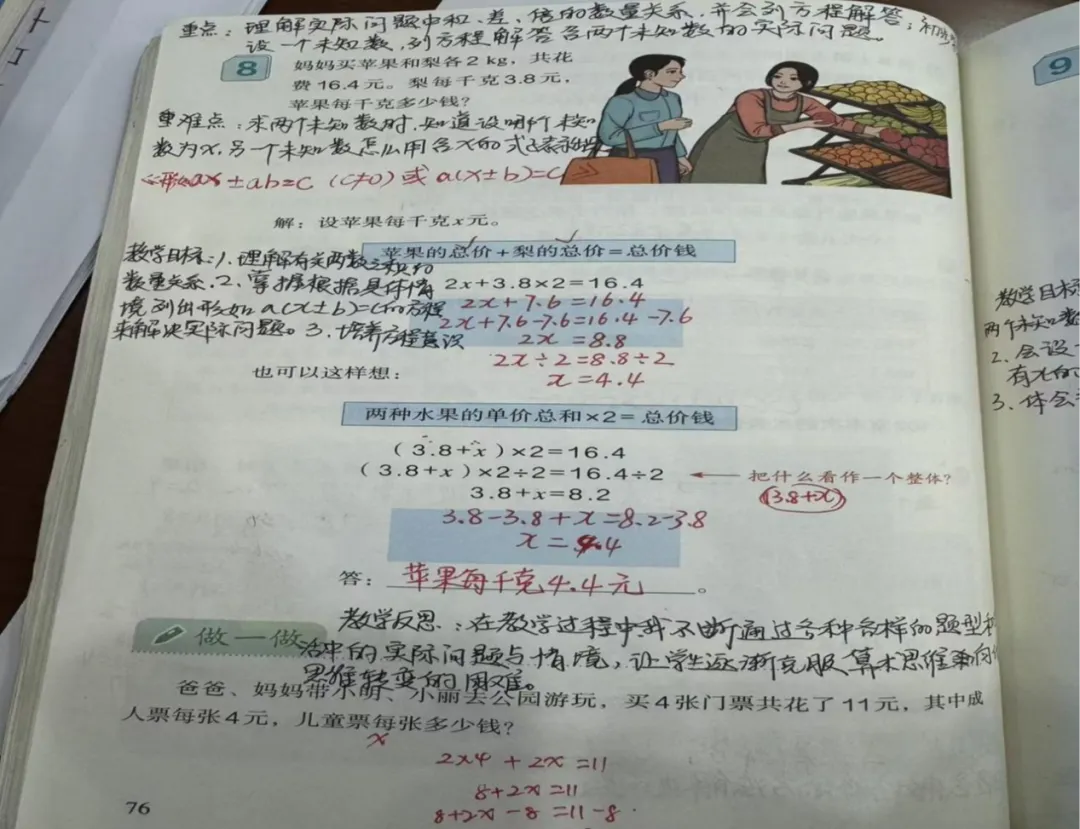 重点：理解实际问题中和、差、倍的数量关系，并会列方程解答；初步
设一个未知数，列方程解答含两个未知数的实际问题。
8
妈妈买苹果和梨各2 kg，共花
费16.4元。梨每千克3.8元，
苹果每千克多少钱？
9
重难点：求两个未知数时，知道设哪个未知
数为x，另一个未知数怎么用含x的式子表示
形如ax±ab=c（c≠0）或a(x±b)=c
解：设苹果每千克x元。
苹果的总价+梨的总价=总价钱
教学目标：1.理解有关两数之积的
数量关系.2.掌握根据具体情
境列出形如a(x±b)=c的方程
来解决实际问题。3.培养方程意识
2x+3.8×2=16.4
2x+7.6=16.4
2x+7.6-7.6=16.4-7.6
2x=8.8
2x÷2=8.8÷2
x=4.4
也可以这样想：
两种水果的单价总和×2=总价钱
（3.8+x）×2=16.4
（3.8+x）×2÷2=16.4÷2
把什么看作一个整体？
(3.8+x)
3.8+x=8.2
3.8-3.8+x=8.2-3.8
x=4.4
答：苹果每千克4.4元。
教学反思：在教学过程中我不断通过各种各样的题型和
做一做
活中的实际问题与情境，让学生逐渐克服算术思维
思维转变的困难。
爸爸、妈妈带小明、小丽去公园游玩，买4张门票共花了11元，其中成
人票每张4元，儿童票每张多少钱？
x
2×4+2x=11
8+2x=11
8+2x-8=11-8
76
教学目标
两个未知数
2.会设一
有x的
3.体会